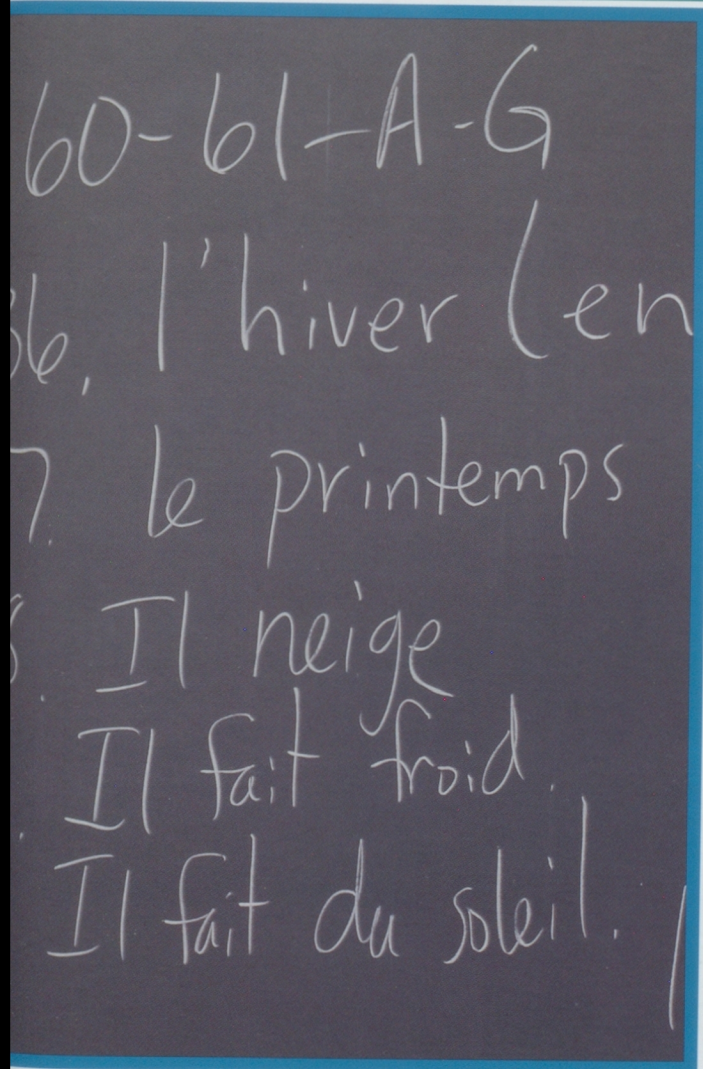 60-61-A-G
36. l'hiver (en
7. le printemps
8. Il neige
. Il fait froid.
Il fait du soleil.